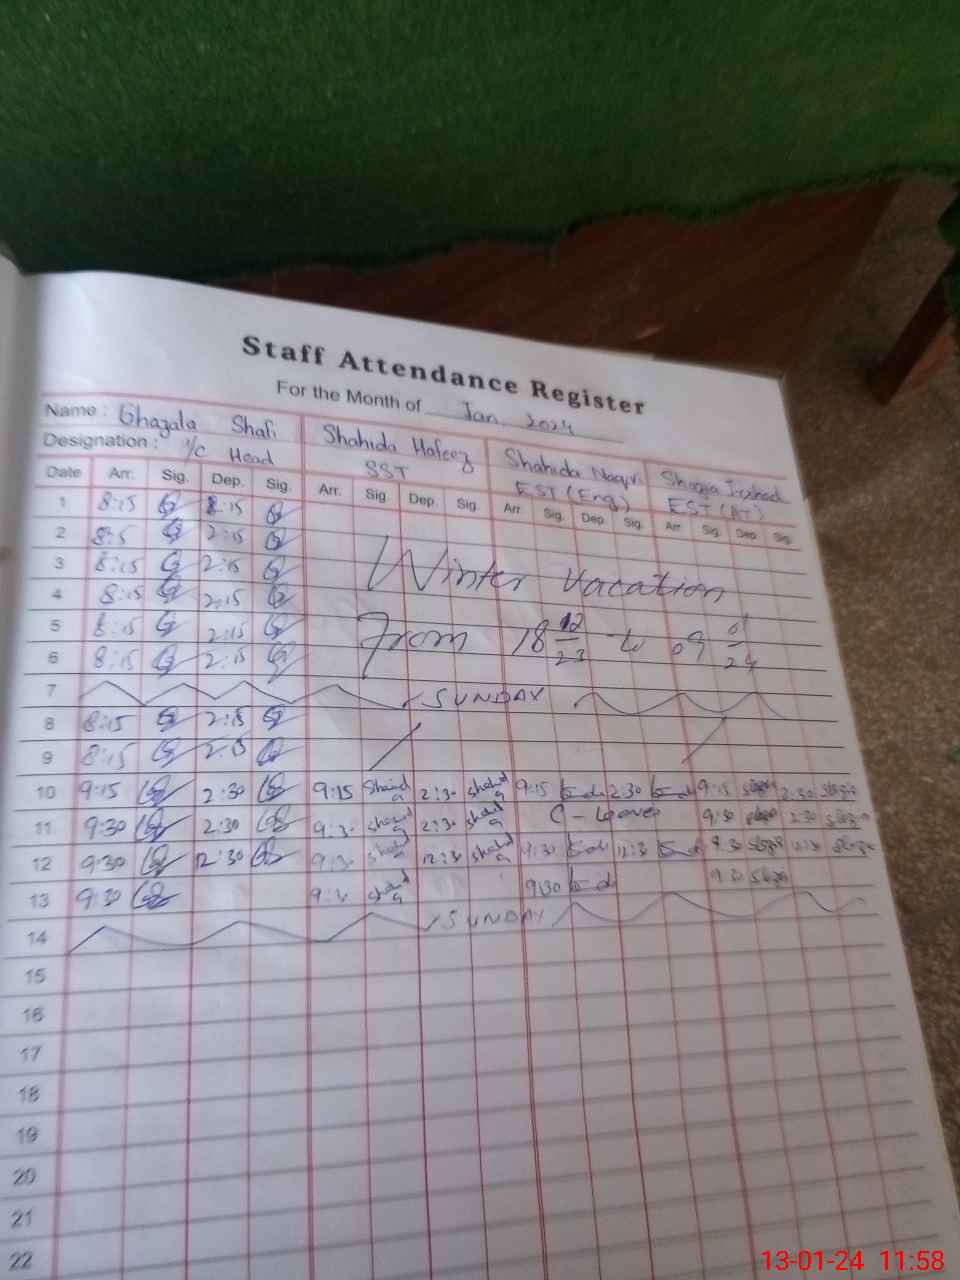 Staff Attendance Register
For the Month of Jan. 2024
Name : Ghazala Shafi Shahida Hafeez Shahida Naqvi Shagja
Designation : I/C Head SST EST (Eng) EST (AT)
Date Arr. Sig. Dep. Sig. Arr. Sig Dep. Sig. Arr. Sig. Dep. Sig. Arr. Sig. Dep. Sig.
1 8:15 8:15
2 8:5 2:15
3 8:15 2:15 Winter vacation
4 8:15 2:15
5 8:15 2:15 From 18 12/23 to 09 01/24
6 8:15 2:15
7 SUNDAY
8 8:15 2:15
9 8:15 2:15
10 9:15 2:30 9:15 Shahida 2:30 Shahida 9:15 2:30 9:15 2:30
11 9:30 2:30 9:30 Shahida 2:30 Shahida C - Leave 9:30 2:30
12 9:30 12:30 9:30 Shahida 12:30 Shahida 9:30 12:30 9:30 12:30
13 9:30 9:30 Shahida 9:30
14 SUNDAY
15
16
17
18
19
20
21
22
13-01-24 11:58